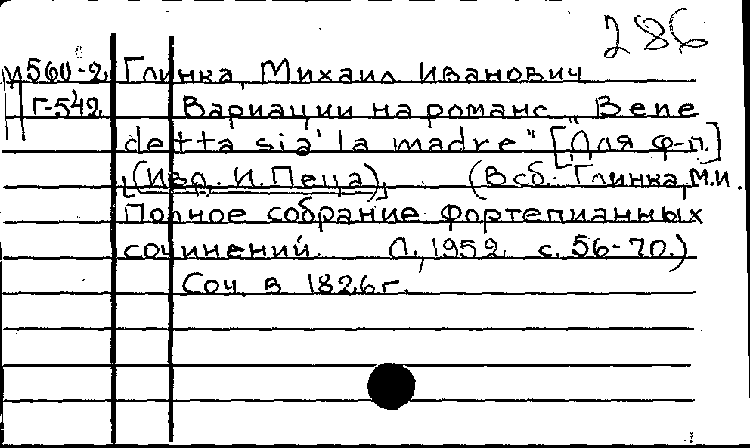 286
М560-2 Глинка, Михаил Иванович
Г-542 Вариации на романс „Bene
detta sia' la madre" [Для ф-п.]
(Изд. И. Пеца), (В сб. Глинка, М.И.
Полное собрание фортепианных
сочинений. Л., 1952. с. 56-70.)
Соч. в 1826 г.